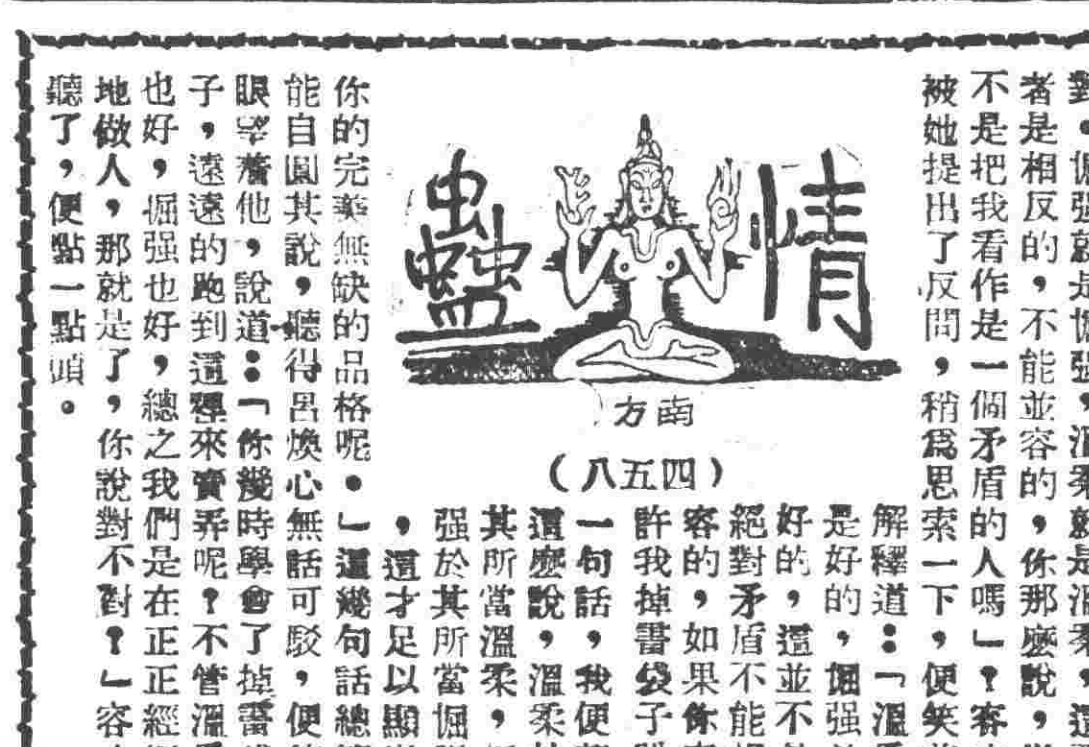 對，倔强就是倔强，溫柔就是溫柔，這
者是相反的，不能並容的，你那麼說，
不是把我看作是一個矛盾的人嗎」？容
被她提出了反問，稍爲思索一下，便笑
解釋道：「溫
是好的，倔强
好的，這並不
絕對矛盾不能
容的，如果你
許我掉書袋子
一句話，我便
這麼說，溫柔
其所當溫柔，
强於其所當倔
，這才足以顯
情蠱
南方
（四五八）
你的完美無缺的品格呢。」這幾句話總
能自圓其說，聽得呂煥心無話可駁，便
眼望着他，說道：「你幾時學會了掉書
子，遠遠的跑到這裡來賣弄呢？不管溫
也好，倔强也好，總之我們是在正正經
地做人，那就是了，你說對不對？」容
聽了，便點一點頭。